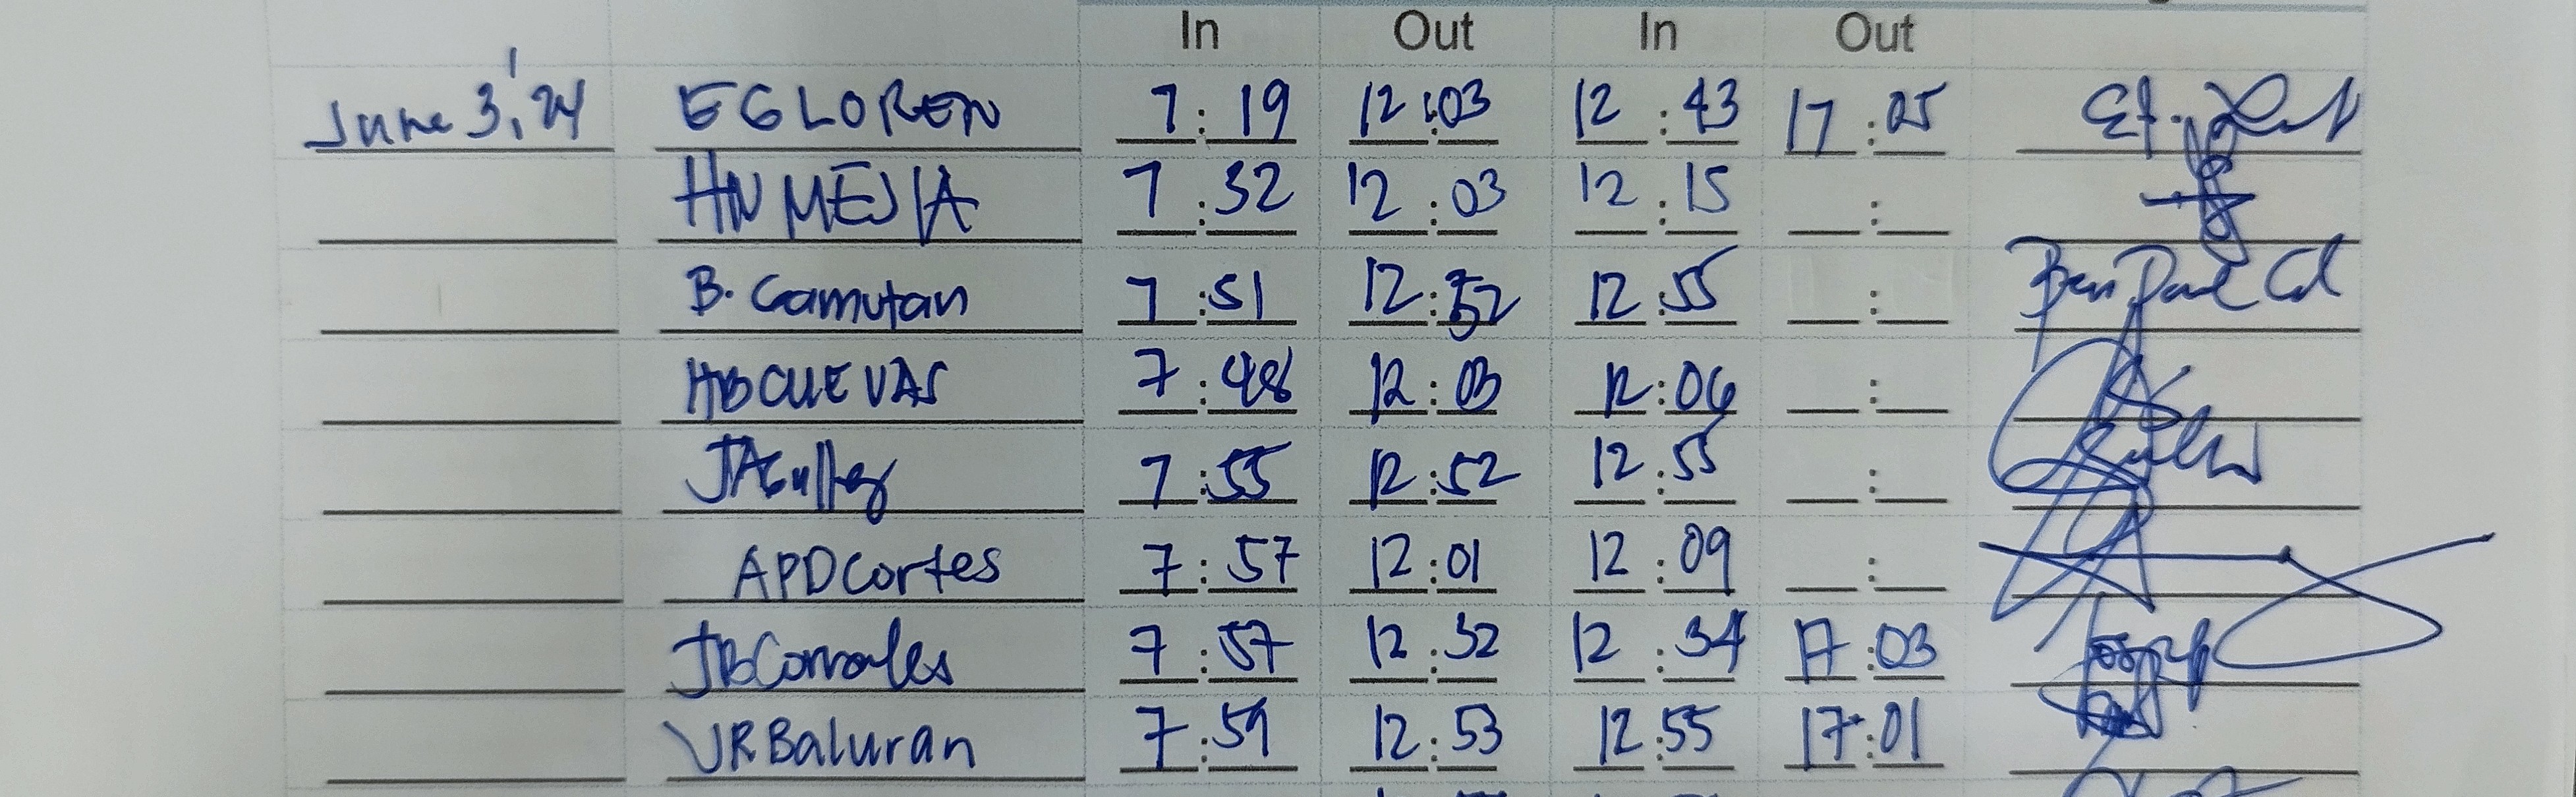 In Out In Out
June 3, '24 EGLOREN 7:19 12:03 12:43 17:05
HNMEJIA 7:32 12:03 12:15 __:__
B. Camutan 7:51 12:52 12:55 __:__
HBCUEVAS 7:48 12:03 12:06 __:__
7:55 12:52 12:55 __:__
APDCortes 7:57 12:01 12:09 __:__
JBCorrales 7:57 12:32 12:34 17:03
VRBaluran 7:59 12:53 12:55 17:01